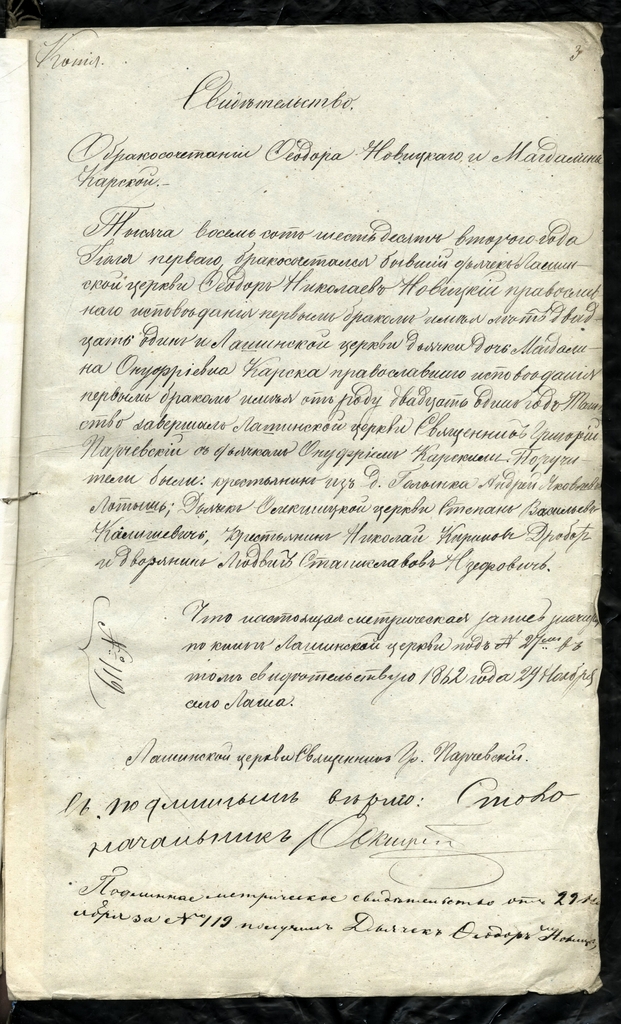 Копія.
3
Свидѣтельство.
О бракосочетаніи Ѳеодора Новицкаго и Магдалины
Карской.-
Тысяча восемьсотъ шестьдесятъ второго года
Іюля перваго, бракосочетался бывшій дьячекъ Лашин-
ской церкви Ѳеодоръ Николаевъ Новицкій православ-
наго исповѣданія первымъ бракомъ имѣя лѣтъ двад-
цать одинъ и Лашинской церкви дьячка дочь Магдали-
на Онуфріевна Карска православнаго исповѣданія
первымъ бракомъ имѣя отъ роду двадцать одинъ годъ. Таин-
ство завершалъ Лашинской церкви Священникъ Григорій
Парчевскій съ дьячкомъ Онуфріемъ Карскимъ. Поручи-
тели были: крестьянинъ изъ д. Андрей Яковлевъ
Лотышъ; Дьячекъ церкви Степанъ Васильевъ
Калишевичъ, Крестьянинъ Николай Кириловъ
и дворянинъ Людвигъ Станиславовъ
Что настоящая метрическая запись
по книгѣ Лашинской церкви подъ № 27мъ въ
томъ свидѣтельствую 1862 года 29 Ноября
село Лаша.
№ 119
Лашинской церкви Священникъ Гр. Парчевскій.
Съ подлиннымъ вѣрно: Столо-
начальникъ
Подлинное метрическое свидѣтельство отъ 29 Но-
ября за № 119 получилъ Дьячекъ Ѳеодоръ Новицкій